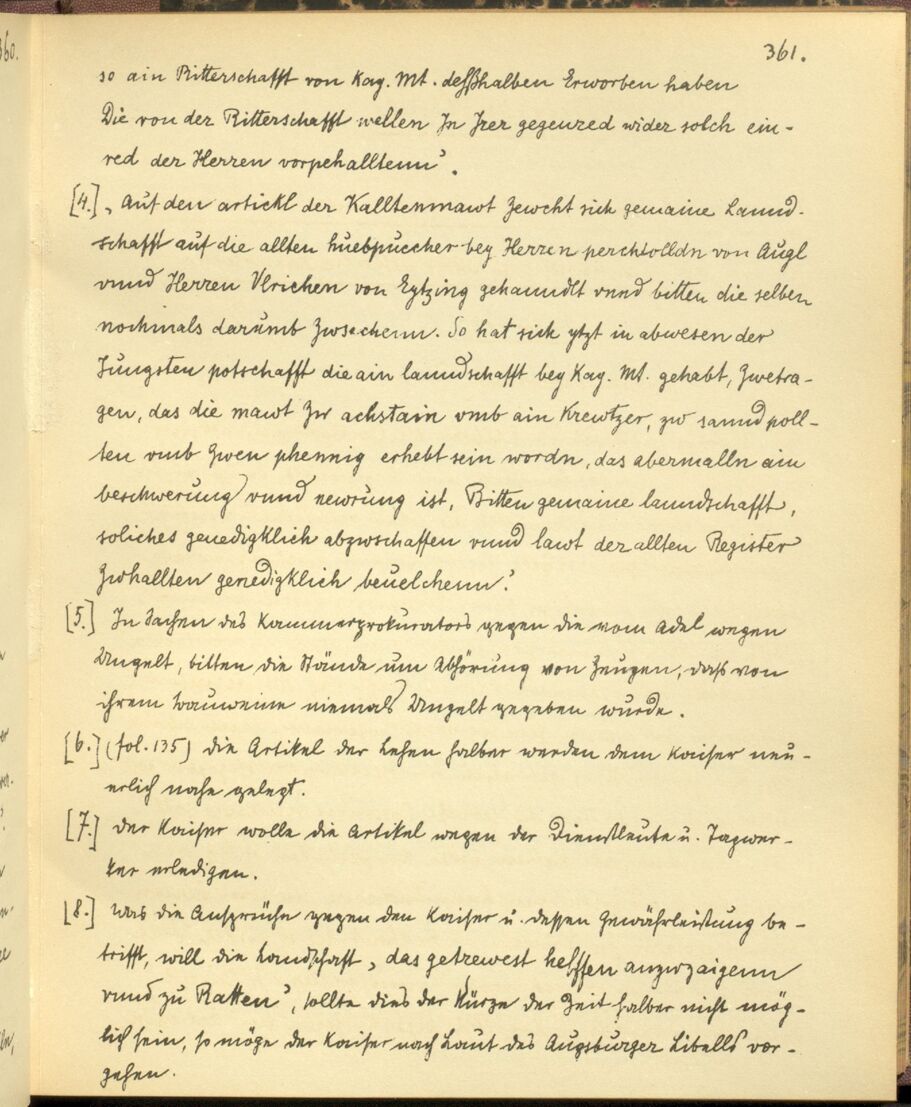 361.
so ain Ritterschafft von Kay. Mt. desshalben Erworben haben
Die von der Ritterschafft wellen In Irer gegenred wider solch ein-
red der Herren vorpehalltenn'.
[4.] „Auf den artickl der Kalltenmawt Zewcht sich gemaine Lannd-
schafft auf die allten huebpuecher bey Herren perchtolldn von Augl
vnnd Herren Vlrichen von Eytzing gehanndlt vnnd bitten die selben
nochmals darumb Zwsechenn. So hat sich ytzt in abwesen der
Jungsten potschafft die ain lanndschafft bey Kay. Mt. gehabt, Zwetra-
gen, das die mawt Zw achstain vmb ain Krewtzer, zw sannd poll-
ten vmb Zwen phennig erhebt sein wordn, das abermalln ain
beschwerung vnnd newrung ist, Bitten gemaine lanndschafft,
soliches genedigklich abzwschaffen vnnd lawt der allten Register
Zwhallten genedigklich beuelchenn.'
[5.] In Sachen des Kammerprokurators gegen die vom Adel wegen
Ungelt, bitten die Stände um Abhörung von Zeugen, dass von
ihrem Bauweine niemals Ungelt gegeben wurde.
[6.] (fol. 135) Die Artikel der Lehen halber werden dem Kaiser neu-
erlich nahe gelegt.
[7.] Der Kaiser wolle die Artikel wegen der Dienstleute u. Tagwer-
ker erledigen.
[8.] Was die Ansprüche gegen den Kaiser u. dessen Gewährleistung be-
trifft, will die Landschaft „das getrewest helffen anzwzaigenn
vnnd zu Ratten', sollte dies der Kürze der Zeit halber nicht mög-
lich sein, so möge der Kaiser nach Laut des Augsburger Libells vor-
gehen.